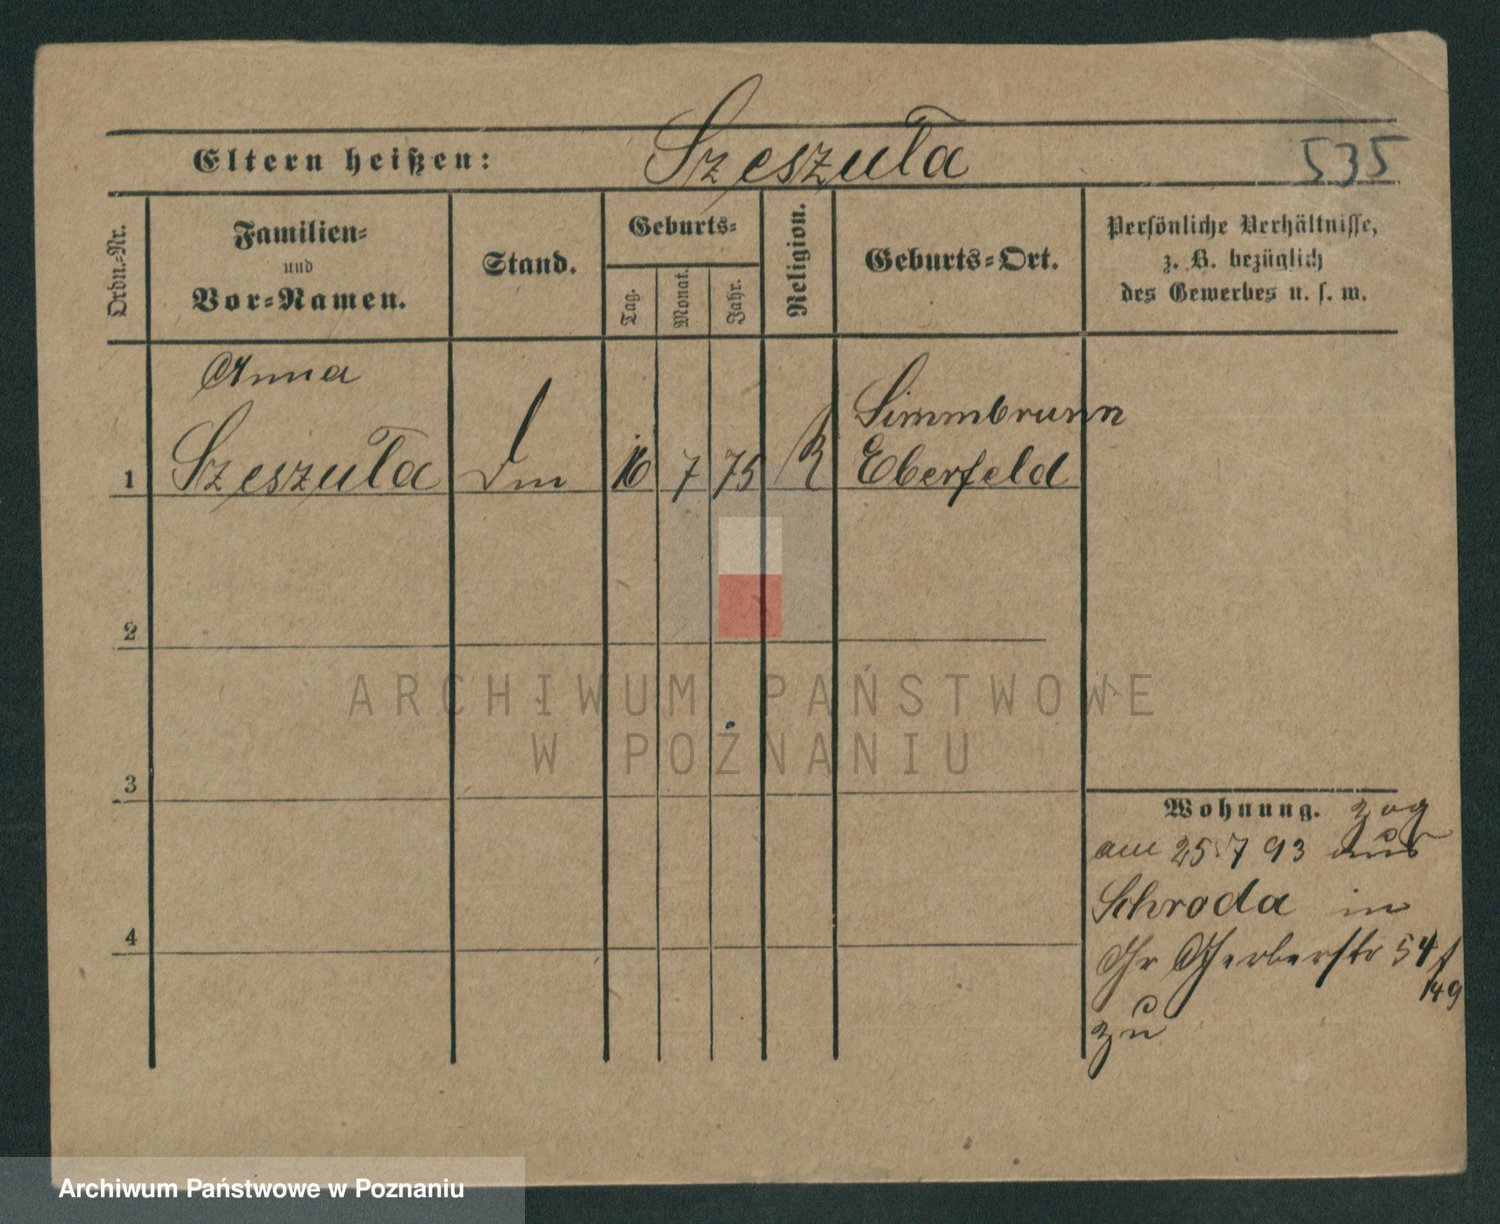 Eltern heißen: Szeszuła 535
Ordn.-Nr.
Familien-
und
Vor-Namen.
Stand.
Geburts-
Tag.
Monat.
Jahr.
Religion.
Geburts-Ort.
Persönliche Verhältnisse,
z. B. bezüglich
des Gewerbes u. s. w.
Anna
Simmbrunn
1 Szeszuła 16 7 75 K Eberfeld
2
3
4
Wohnung. zog
am 25.7 93 aus
Schroda in
Gr Gerberstr 54
149
zu
ARCHIWUM PAŃSTWOWE
W POZNANIU
Archiwum Państwowe w Poznaniu